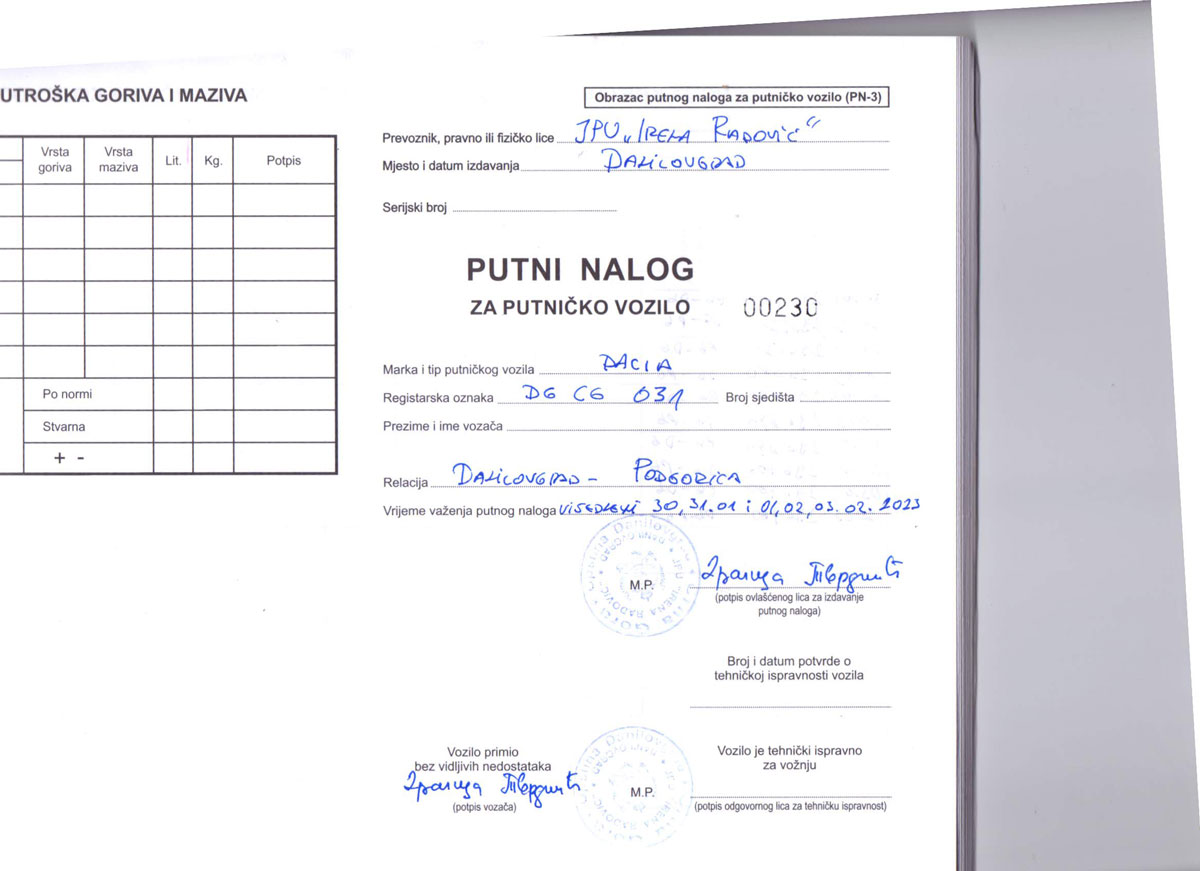 UTROŠKA GORIVA I MAZIVA
Vrsta goriva
Vrsta maziva
Lit.
Kg.
Potpis
Po normi
Stvarna
+ -
Obrazac putnog naloga za putničko vozilo (PN-3)
Prevoznik, pravno ili fizičko lice JPU „IRENA RADOVIĆ“
Mjesto i datum izdavanja DANILOVGRAD
Serijski broj
PUTNI NALOG
ZA PUTNIČKO VOZILO 00230
Marka i tip putničkog vozila DACIA
Registarska oznaka DG CG 031 Broj sjedišta
Prezime i ime vozača
Relacija DANILOVGRAD - PODGORICA
Vrijeme važenja putnog naloga VIŠEDNEVNI 30, 31.01 i 01, 02, 03. 02. 2023
M.P.
(potpis ovlašćenog lica za izdavanje
putnog naloga)
Broj i datum potvrde o
tehničkoj ispravnosti vozila
Vozilo primio
bez vidljivih nedostataka
(potpis vozača)
M.P.
Vozilo je tehnički ispravno
za vožnju
(potpis odgovornog lica za tehničku ispravnost)